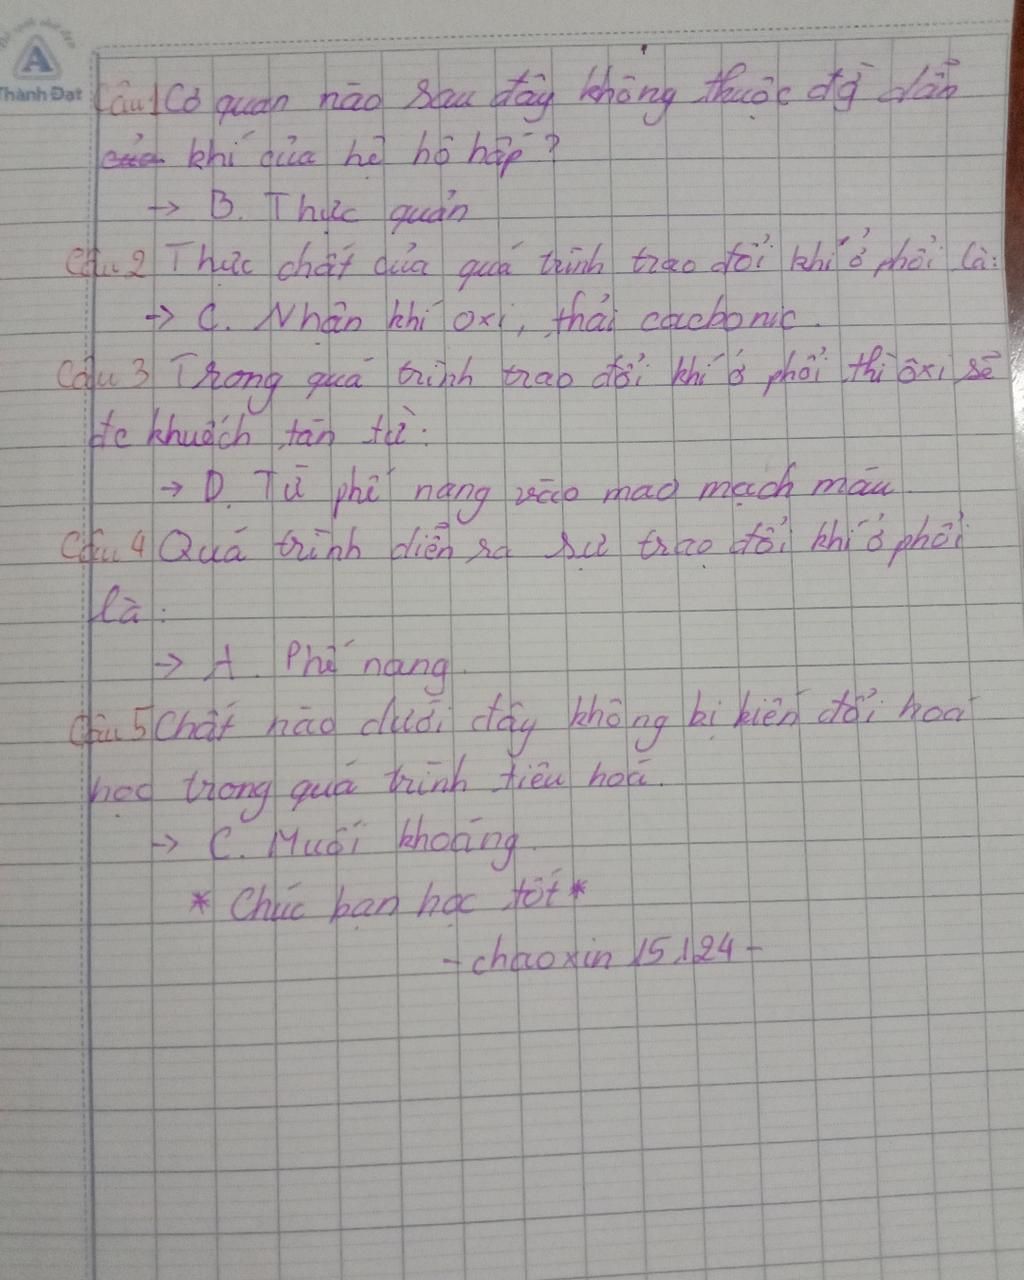 A
Thành Đạt
Câu 1 Cơ quan nào sau đây không thuộc đg dẫn
của khí của hệ hô hấp?
-> B. Thực quản
Câu 2 Thực chất của quá trình trao đổi khí ở phổi là:
-> C. Nhận khí oxi, thải cacbonic.
Câu 3 Trong quá trình trao đổi khí ở phổi thì ôxi sẽ
đc khuếch tán từ:
-> D. Từ phế nang vào mao mạch máu
Câu 4 Quá trình diễn ra sự trao đổi khí ở phổi
là:
-> A. Phế nang.
Câu 5 Chất nào dưới đây không bị biến đổi hoá
học trong quá trình tiêu hoá.
-> C. Muối khoáng.
* Chúc bạn học tốt *
- chaoxin 15124 -